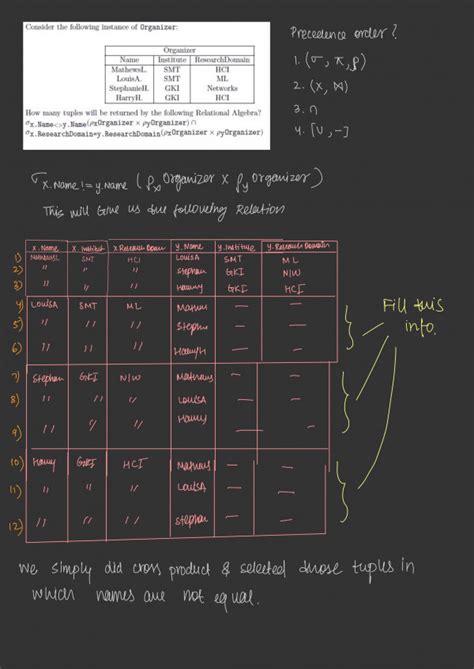 Consider the following instance of Organizer:
Organizer
Name Institute ResearchDomain
MathewsL. SMT HCI
LouisA. SMT ML
StephanieH. GKI Networks
HarryH. GKI HCI
How many tuples will be returned by the following Relational Algebra?
σx.Name<>y.Name(ρxOrganizer × ρyOrganizer) ∩
σx.ResearchDomain=y.ResearchDomain(ρxOrganizer × ρyOrganizer)
Precedence order?
1. (σ, π, ρ)
2. (×, ⋈)
3. ∩
4. [∪, −]
σ x.Name != y.Name (ρx Organizer × ρy Organizer)
This will give us the following Relation
x.Name x.Institute x.Research Domain y.Name y.Institute y.Research Domain
1) MathewsL SMT HCI LouisA SMT ML
2) " " " Stephan GKI N/W
3) " " " Harry GKI HCI
4) LouisA SMT ML Mathews — —
5) " " " Stephn — —
6) " " " HarryH — —
7) Stephan GKI N/W Mathews — —
8) " " " LouisA — —
9) " " " Harry — —
10) Harry GKI HCI Mathews — —
11) " " " LouisA — —
12) " " " Stephan — —
Fill this
info.
We simply did cross product & selected those tuples in
which names are not equal.